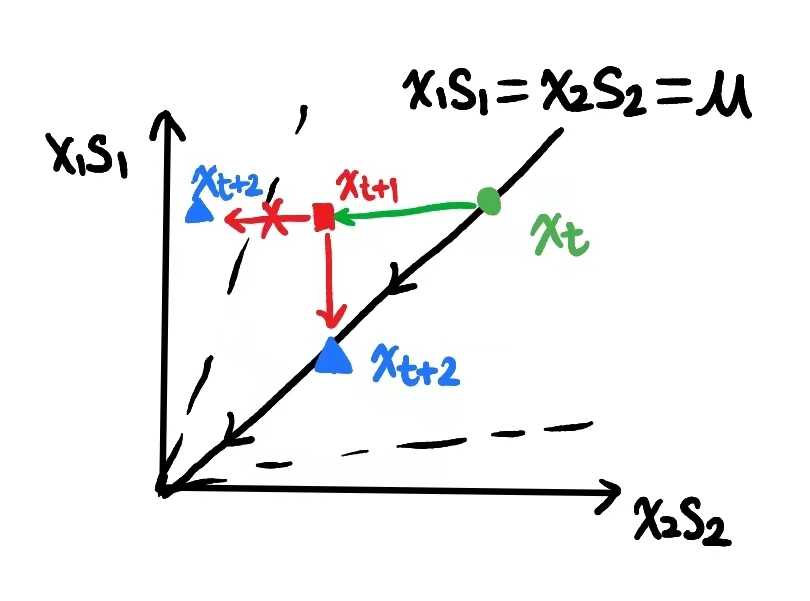 x₁s₁=x₂s₂=μ
x₁s₁
xₜ₊₂
xₜ₊₁
xₜ
xₜ₊₂
x₂s₂